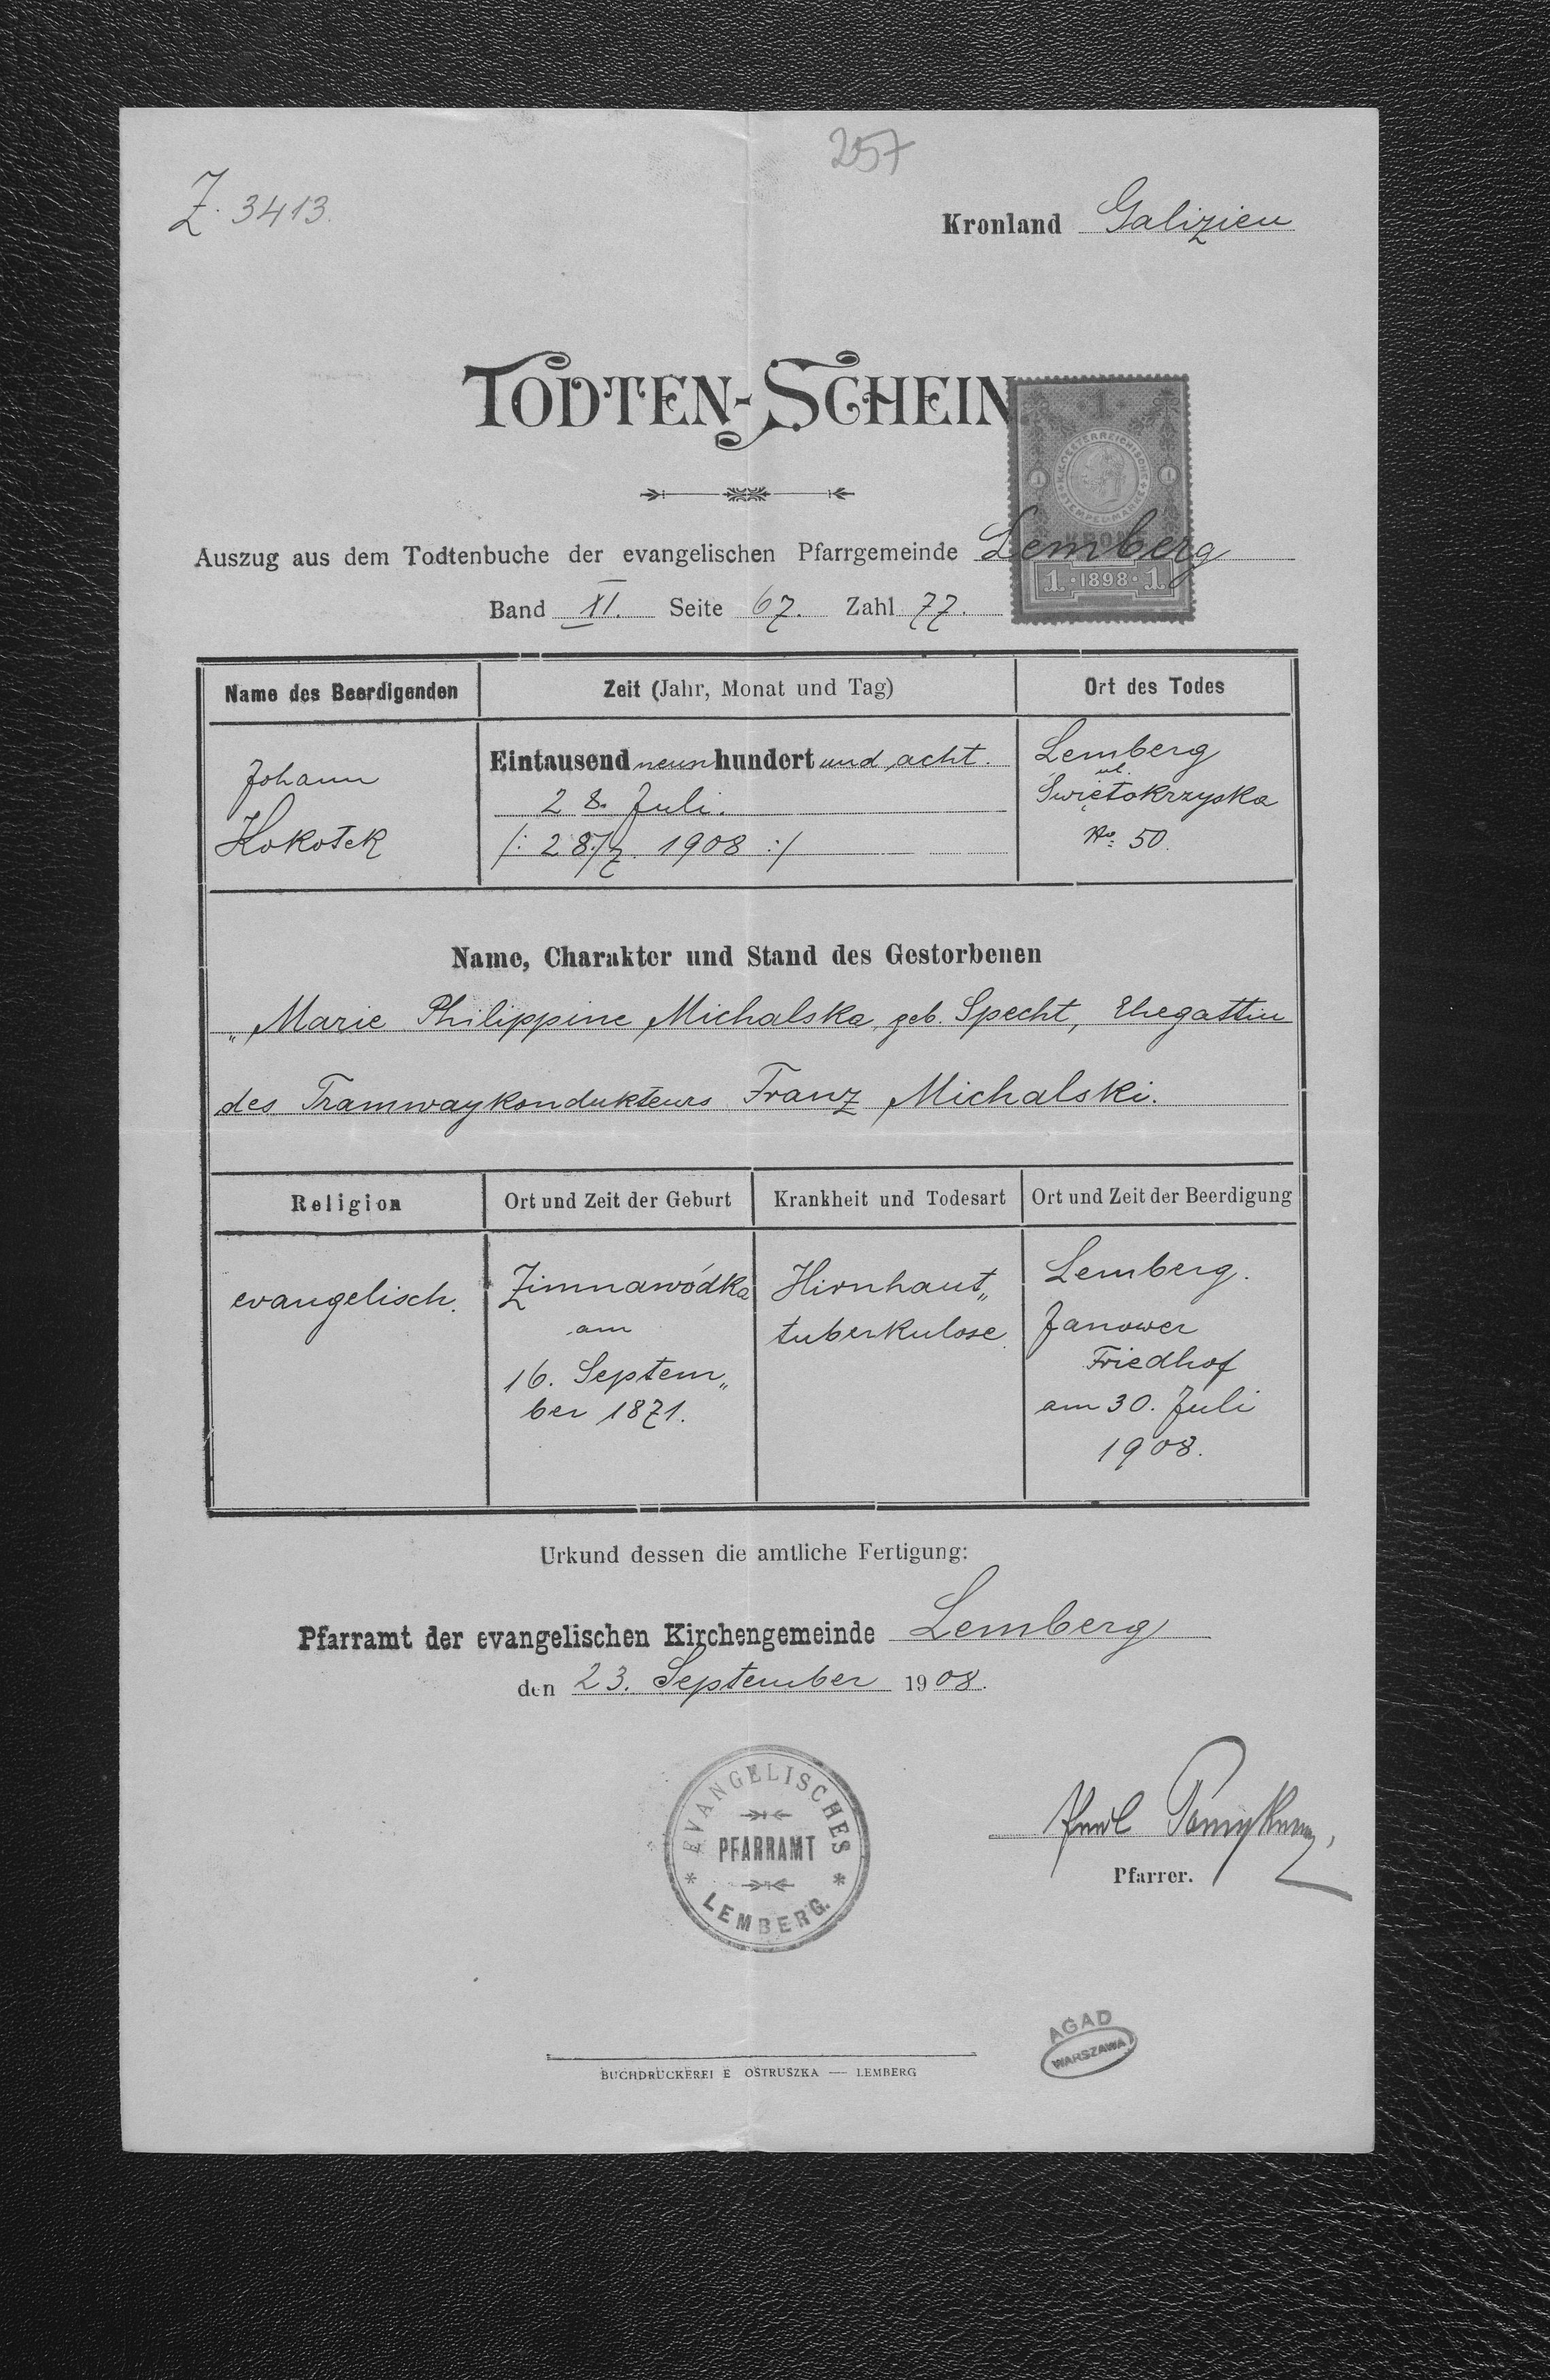 257
Z. 3413.
Kronland Galizien
TODTEN-SCHEIN
1
K.K. OESTERREICHISCHE STEMPEL-MARKE
1 1
KRONE
1 · 1898 · 1
Auszug aus dem Todtenbuche der evangelischen Pfarrgemeinde Lemberg
Band XI. Seite 67. Zahl 77.
Name des Beerdigenden
Zeit (Jahr, Monat und Tag)
Ort des Todes
Johann
Kokotek
Eintausend neun hundert und acht.
28. Juli.
/: 28./7. 1908 :/
Lemberg
ul.
Świętokrzyska
No: 50.
Name, Charakter und Stand des Gestorbenen
„Marie Philippine Michalska, geb. Specht, Ehegattin
des Tramwaykondukteurs Franz Michalski.
Religion
Ort und Zeit der Geburt
Krankheit und Todesart
Ort und Zeit der Beerdigung
evangelisch.
Zimnawódka
am
16. Septem„
ber 1871.
Hirnhaut„
tuberkulose.
Lemberg.
Janower
Friedhof
am 30. Juli
1908.
Urkund dessen die amtliche Fertigung:
Pfarramt der evangelischen Kirchengemeinde Lemberg
den 23. September 1908.
EVANGELISCHES
PFARRAMT
* LEMBERG. *
Pfarrer.
AGAD
WARSZAWA
BUCHDRUCKEREI E OSTRUSZKA — LEMBERG